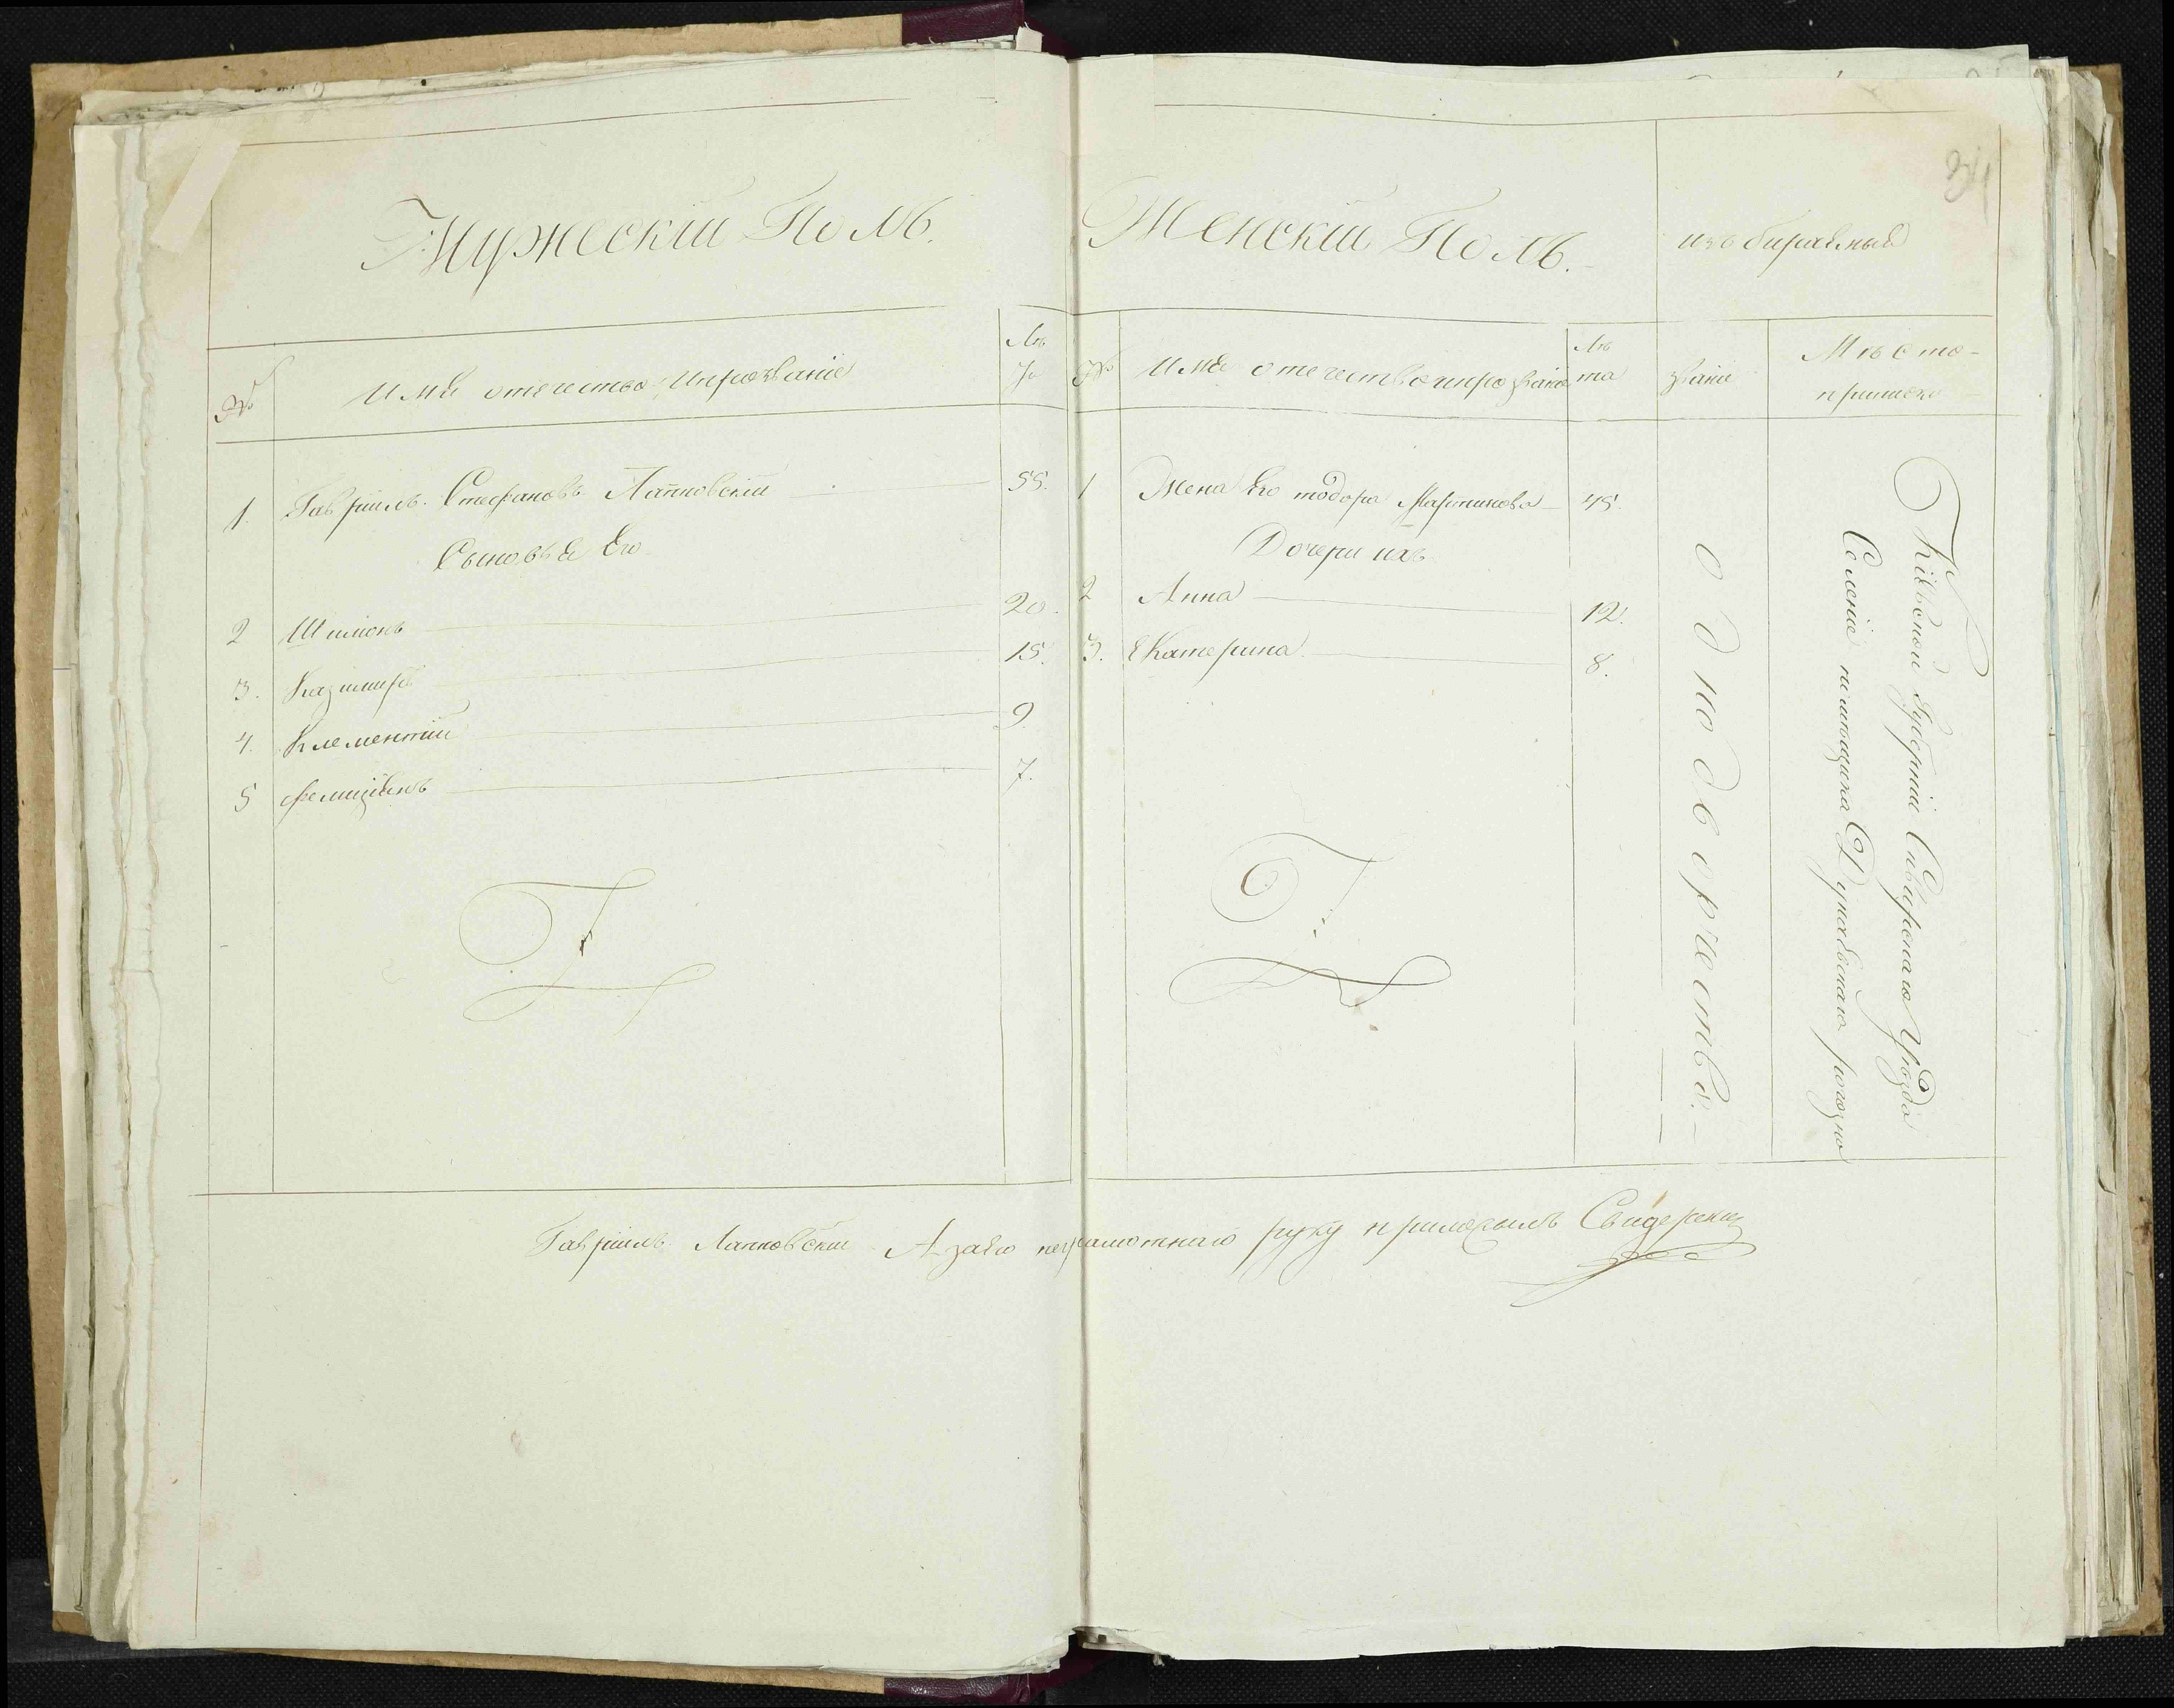 34
Мужескій Полъ.
№
Имя отечество и прозваніе
Лѣ
та
1. Гавріилъ Стефановъ Лапковскій 55.
Сыновья Его
2 Шимонъ 20.
3. Казимиръ 15.
4. Клементій 9
5 Фелиціянъ 7.
Женскій Полъ.
№
Имя отечество и прозваніе
Лѣ
та
1 Жена Его тодора Мартинова 45.
Дочери ихъ
2 Анна 12.
3. Екатерина 8.
избираемый
званіе
Мѣсто
приписки
однодворчества.
Кіевской Губерніи Сквирскаго Уѣзда
Селеніе помѣщика
Гавріилъ Лапковскій А за его неграмотнаго руку приложилъ Свидерскій